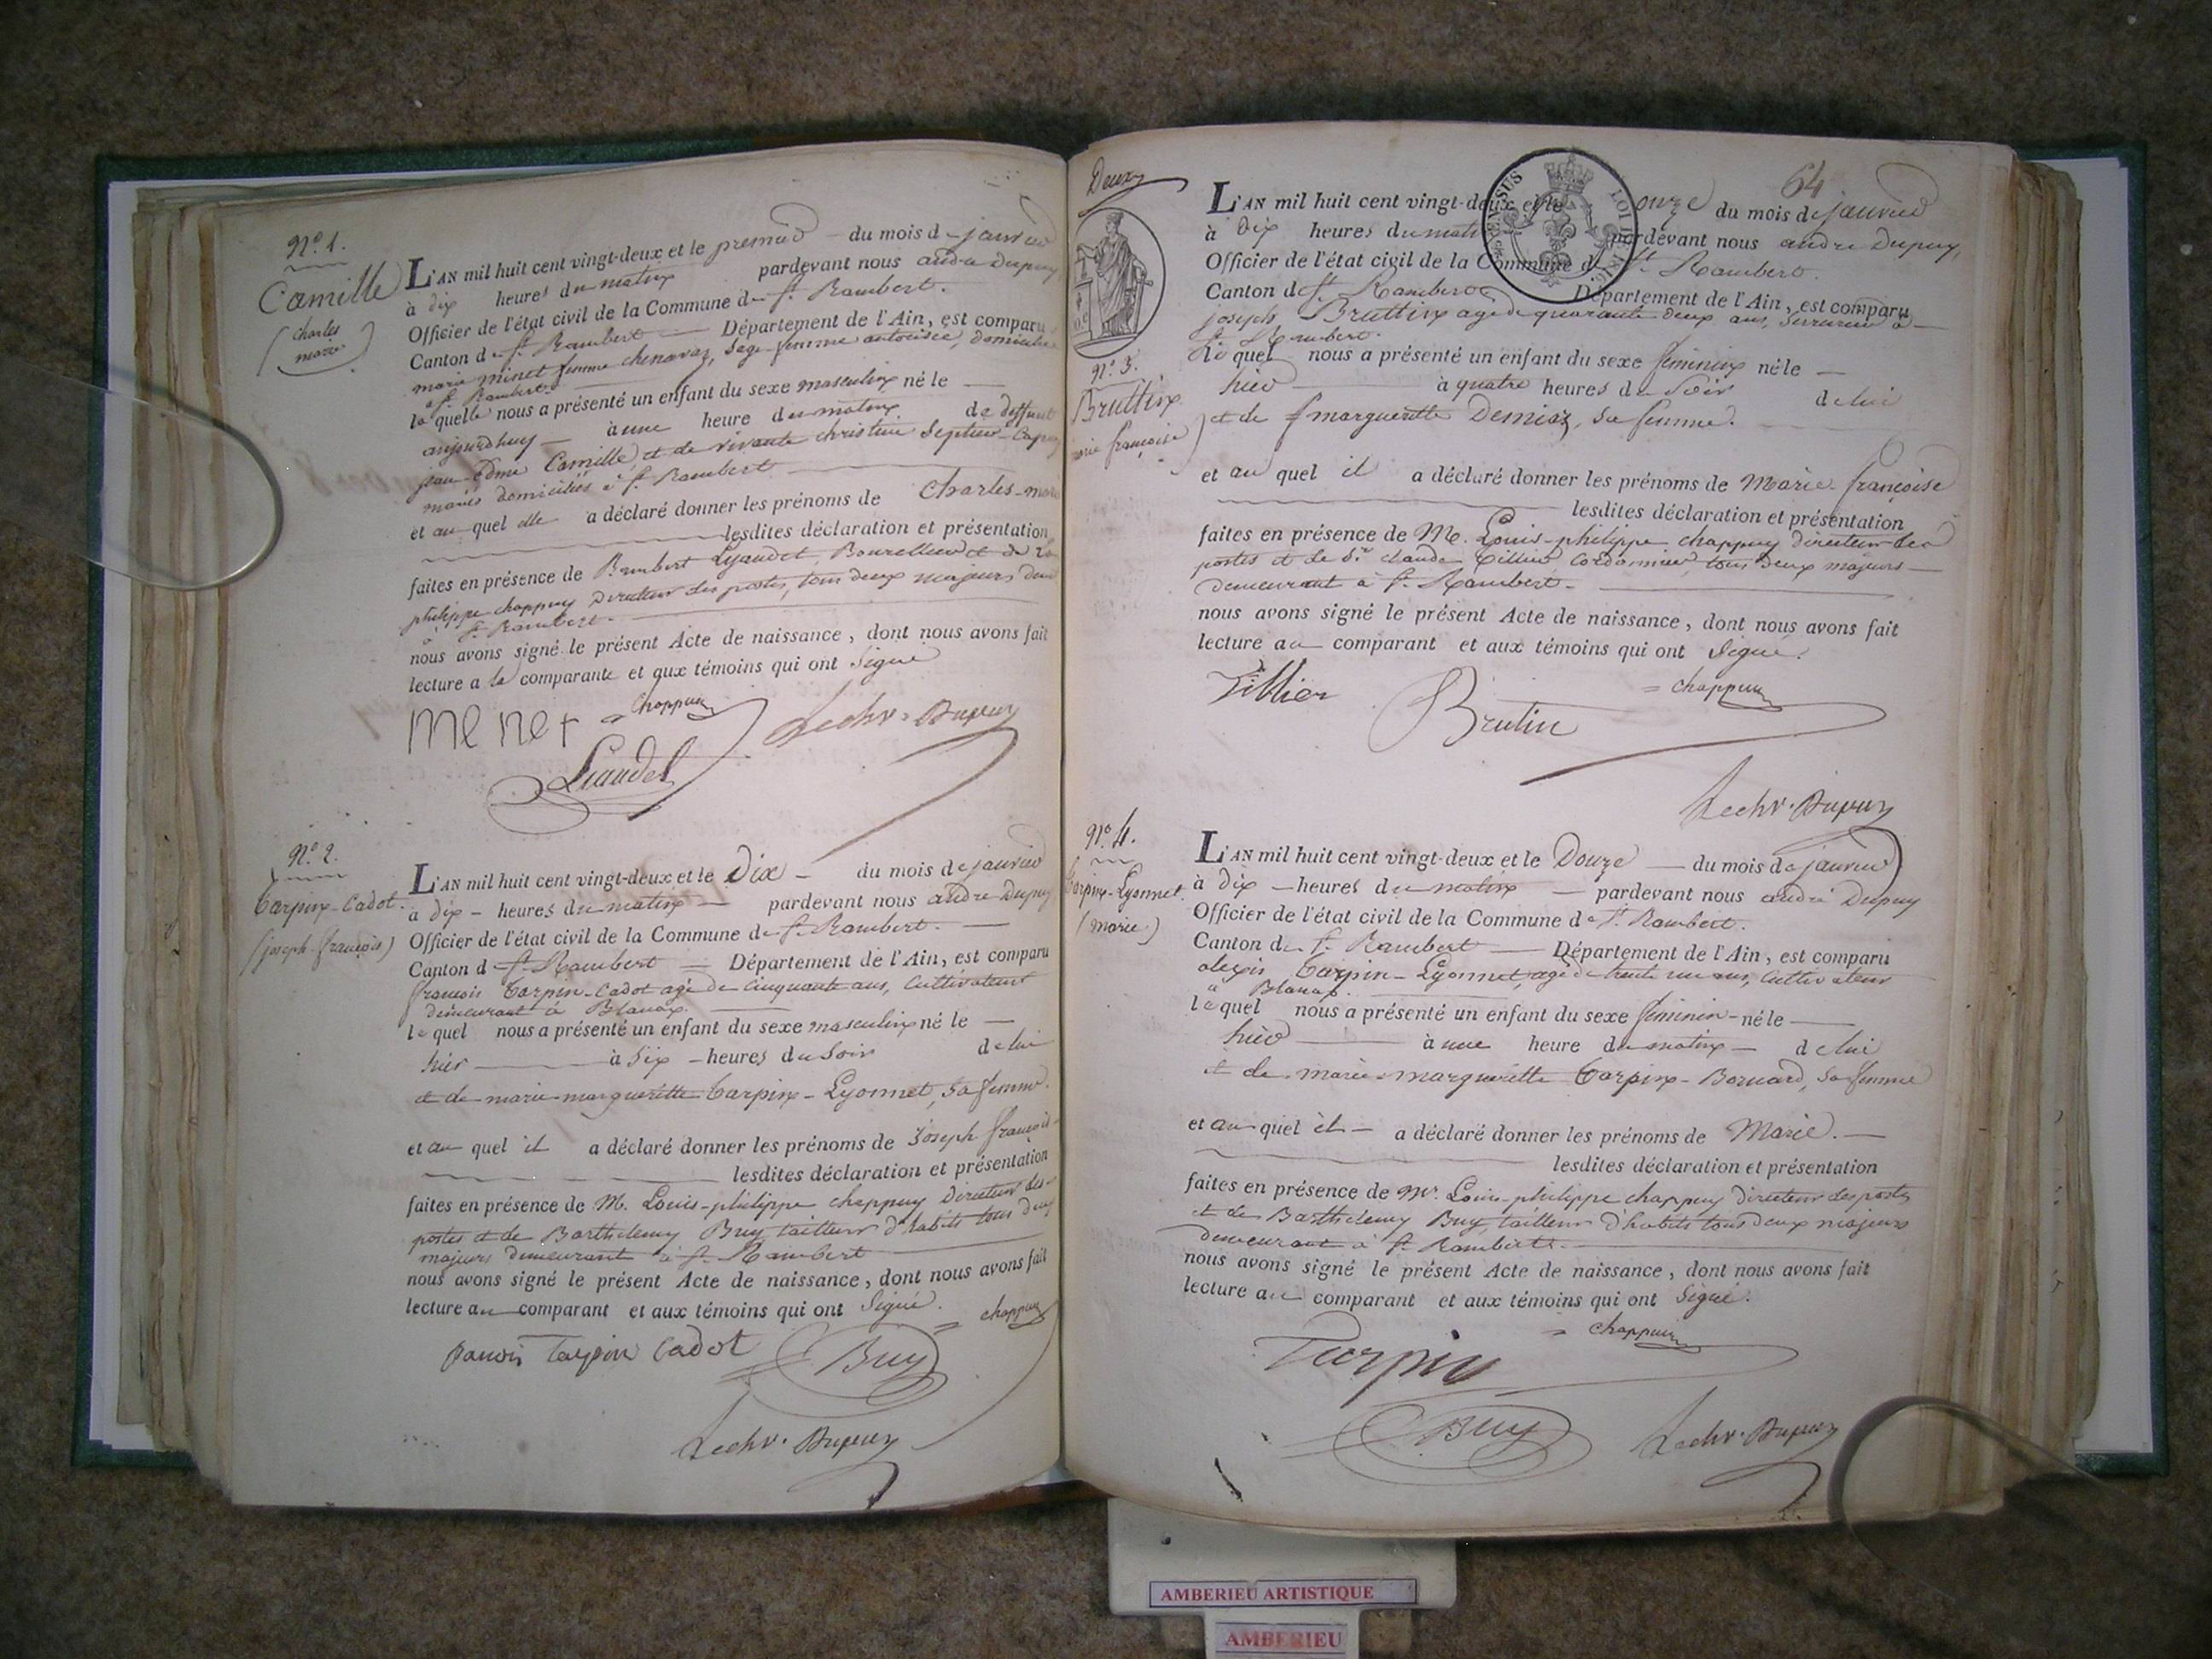 N.º 1.
Camille
(charles
marie)
L'AN mil huit cent vingt-deux et le premier du mois de janvier
à dix heures du matin pardevant nous andré Dupuy
Officier de l'état civil de la Commune de St. Rambert.
Canton de St. Rambert Département de l'Ain, est comparu
marie minet femme chenavaz, sage-femme autorisée, domiciliée
à St. Rambert
laquelle nous a présenté un enfant du sexe masculin né le
aujourdhuy à une heure du matin de deffunt
jean Edme Camille, et de vivante christine
mariés domiciliés à St. Rambert
et au quel elle a déclaré donner les prénoms de Charles-marie
lesdites déclaration et présentation
faites en présence de Rambert Lyaudet, Bourellier et de
philippe chappuy Directeur des postes, tous deux majeurs
à St. Rambert.
nous avons signé le présent Acte de naissance, dont nous avons fait
lecture a la comparante et aux témoins qui ont signé
menet chappuy
Liaudet Lechr. Dupuy
N.º 2.
Tarpin-Cadot.
(joseph-françois)
L'AN mil huit cent vingt-deux et le Dix du mois de janvier
à dix heures du matin pardevant nous andré Dupuy
Officier de l'état civil de la Commune de St. Rambert.
Canton d St. Rambert Département de l'Ain, est comparu
françois Tarpin-Cadot agé de Cinquante ans, Cultivateur
demeurant à Blanaz.
lequel nous a présenté un enfant du sexe masculin né le
hier à six heures du soir de lui
et de marie-margueritte Tarpin-Lyonnet, sa femme.
et au quel il a déclaré donner les prénoms de Joseph françois
lesdites déclaration et présentation
faites en présence de M. Louis-philippe chappuy Directeur des
postes et de Barthelemy Buy, tailleur d'habits tous deux
majeurs demeurant à St. Rambert
nous avons signé le présent Acte de naissance, dont nous avons fait
lecture au comparant et aux témoins qui ont signé.
chappuy
Tarpin Cadot Buy
Lechr. Dupuy
Deux
64
L'AN mil huit cent vingt-deux et le onze du mois de janvier
à dix heures du matin pardevant nous andré Dupuy,
Officier de l'état civil de la Commune de St. Rambert.
Canton de St. Rambert Département de l'Ain, est comparu
joseph Bruttin agé de quarante deux ans, serrurier à
St. Rambert.
N.º 3.
Bruttin
françoise)
Le quel nous a présenté un enfant du sexe féminin né le
hier à quatre heures du soir de lui
et de margueritte Demiaz, sa femme.
et au quel il a déclaré donner les prénoms de Marie-françoise
lesdites déclaration et présentation
faites en présence de M. Louis-philippe chappuy directeur des
postes et de Sr. claude Tillier, cordonnier, tous deux majeurs
demeurant à St. Rambert.
nous avons signé le présent Acte de naissance, dont nous avons fait
lecture au comparant et aux témoins qui ont signé.
Tillier Brutin chappuy
Lechr. Dupuy
N.º 4.
Tarpin-Lyonnet.
(marie)
L'AN mil huit cent vingt-deux et le Douze du mois de janvier
à dix heures du matin pardevant nous andré Dupuy
Officier de l'état civil de la Commune de St. Rambert.
Canton de St. Rambert Département de l'Ain, est comparu
alexis Tarpin-Lyonnet, agé de trente un ans, Cultivateur
à Blanaz.
lequel nous a présenté un enfant du sexe féminin né le
hier à une heure du matin de lui
et de marie-margueritte Tarpin-Bornard, sa femme
et au quel il a déclaré donner les prénoms de Marie.
lesdites déclaration et présentation
faites en présence de Mr. Louis-philippe chappuy directeur des postes
et de Barthelemy Buy, tailleur d'habits tous deux majeurs
demeurant à St. Rambert.
nous avons signé le présent Acte de naissance, dont nous avons fait
lecture au comparant et aux témoins qui ont signé.
chappuy
Tarpin
Buy Lechr. Dupuy
AMBERIEU ARTISTIQUE
AMBERIEU